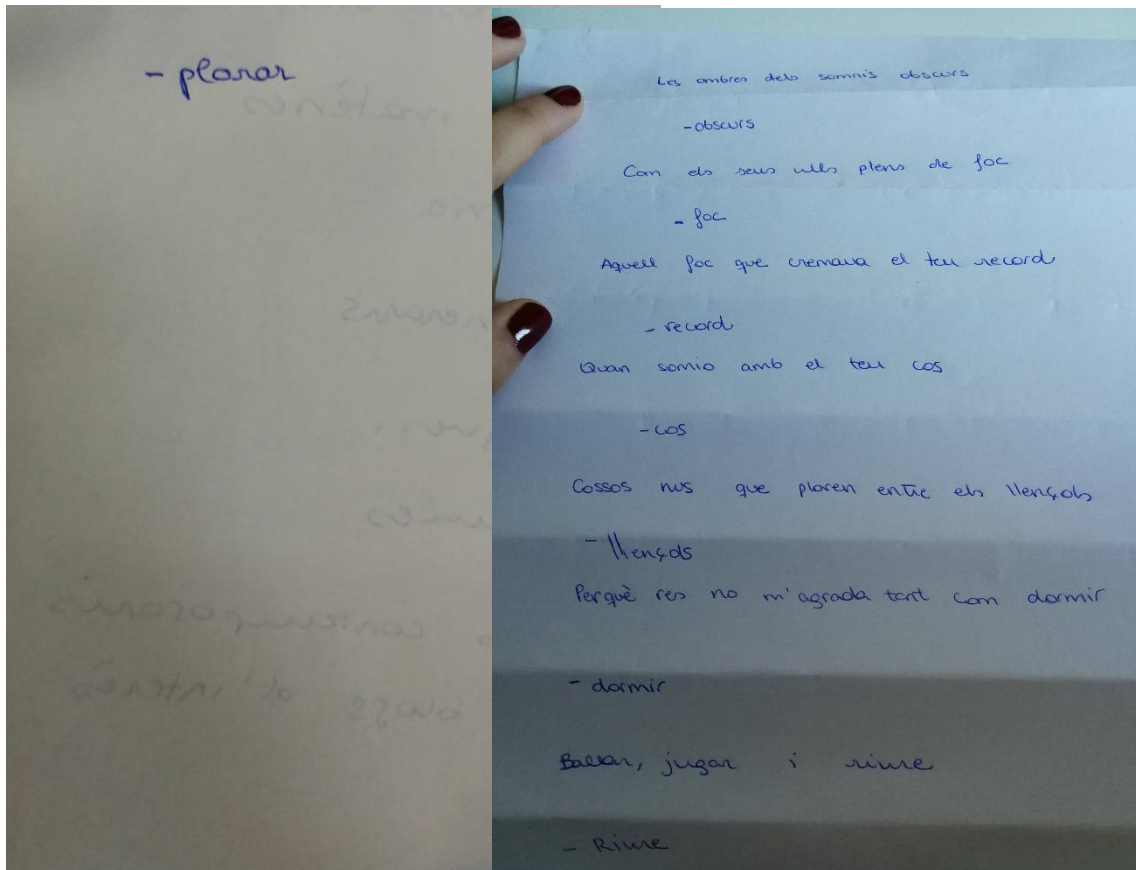 - plorar
Les ombres dels somnis obscurs
- obscurs
Com els seus ulls plens de foc
- foc
Aquell foc que cremava el teu record
- record
Quan somio amb el teu cos
- cos
Cossos nus que ploren entre els llençols
- llençols
Perquè res no m'agrada tant com dormir
- dormir
Ballar, jugar i riure
- Riure